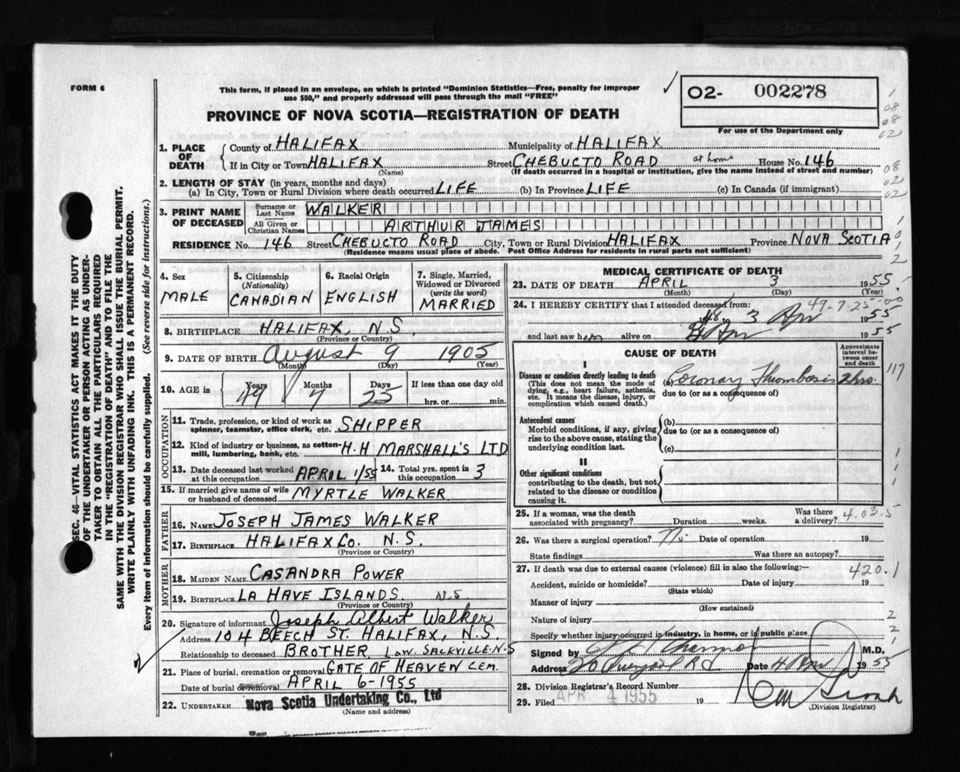 FORM 6
This form, if placed in an envelope, on which is printed "Dominion Statistics—Free, penalty for improper
use $50," and properly addressed will pass through the mail "FREE"
PROVINCE OF NOVA SCOTIA—REGISTRATION OF DEATH
02- 002278
For use of the Department only
1. PLACE OF DEATH
County of HALIFAX Municipality of HALIFAX
If in City or Town HALIFAX Street CHEBUCTO ROAD at home House No. 146
(Name) (If death occurred in a hospital or institution, give the name instead of street and number)
2. LENGTH OF STAY (in years, months and days)
(a) In City, Town or Rural Division where death occurred LIFE (b) In Province LIFE (c) In Canada (if immigrant)
3. PRINT NAME OF DECEASED
Surname or Last Name WALKER
All Given or Christian Names ARTHUR JAMES
RESIDENCE No. 146 Street CHEBUCTO ROAD City, Town or Rural Division HALIFAX Province NOVA SCOTIA
(Residence means usual place of abode. Post Office Address for residents in rural parts not sufficient)
4. Sex MALE
5. Citizenship (Nationality) CANADIAN
6. Racial Origin ENGLISH
7. Single, Married, Widowed or Divorced (write the word) MARRIED
8. BIRTHPLACE HALIFAX, N.S.
(Province or Country)
9. DATE OF BIRTH August 9 1905
(Month) (Day) (Year)
10. AGE in Years 49 Months 7 Days 25 If less than one day old
hrs. or min.
OCCUPATION
11. Trade, profession, or kind of work as
spinner, teamster, office clerk, etc. SHIPPER
12. Kind of industry or business, as cotton-
mill, lumbering, bank, etc. H.H MARSHALL'S LTD
13. Date deceased last worked
at this occupation APRIL 1/55 14. Total yrs. spent in
this occupation 3
15. If married give name of wife
or husband of deceased MYRTLE WALKER
FATHER
16. NAME JOSEPH JAMES WALKER
17. BIRTHPLACE HALIFAX CO. N.S.
(Province or Country)
MOTHER
18. MAIDEN NAME CASANDRA POWER
19. BIRTHPLACE LA HAVE ISLANDS. N.S
(Province or Country)
20. Signature of informant Joseph Albert Walker
Address 104 BEECH ST. HALIFAX, N.S.
Relationship to deceased BROTHER LOW. SACKVILLE N.S
21. Place of burial, cremation or removal GATE OF HEAVEN CEM.
Date of burial or removal APRIL 6-1955
22. UNDERTAKER Nova Scotia Undertaking Co., Ltd
(Name and address)
MEDICAL CERTIFICATE OF DEATH
23. DATE OF DEATH APRIL 3 1955.
(Month) (Day)
24. I HEREBY CERTIFY that I attended deceased from:
49-7-25-00
3 Apr 1955
and last saw him alive on 1955
CAUSE OF DEATH
Approximate interval between onset and death
I
Disease or condition directly leading to death
(This does not mean the mode of
dying, e.g., heart failure, asthenia,
etc. It means the disease, injury, or
complication which caused death.)
(a) Coronary Thrombosis 2 hrs.
due to (or as a consequence of)
117
Antecedent causes
Morbid conditions, if any, giving
rise to the above cause, stating the
underlying condition last.
(b)
due to (or as a consequence of)
(c)
II
Other significant conditions
contributing to the death, but not
related to the disease or condition
causing it.
25. If a woman, was the death
associated with pregnancy? Duration weeks. Was there
a delivery?
4.03.5
26. Was there a surgical operation? No Date of operation 19
State findings Was there an autopsy?
27. If death was due to external causes (violence) fill in also the following: 420.1
Accident, suicide or homicide? Date of injury 19
(State which)
Manner of injury
(How sustained)
Nature of injury
Specify whether injury occurred in industry, in home, or in public place
Signed by M.D.
Address Date 4 Apr 1955
28. Division Registrar's Record Number
29. Filed APR 4 1955 19
(Division Registrar)
SEC. 46—VITAL STATISTICS ACT MAKES IT THE DUTY
OF THE UNDERTAKER OR PERSON ACTING AS UNDER-
TAKER TO OBTAIN ALL THE PARTICULARS REQUIRED
IN THE "REGISTRATION OF DEATH" AND TO FILE THE
SAME WITH THE DIVISION REGISTRAR WHO SHALL ISSUE THE BURIAL PERMIT.
WRITE PLAINLY WITH UNFADING INK. THIS IS A PERMANENT RECORD.
Every item of information should be carefully supplied. (See reverse side for instructions.)